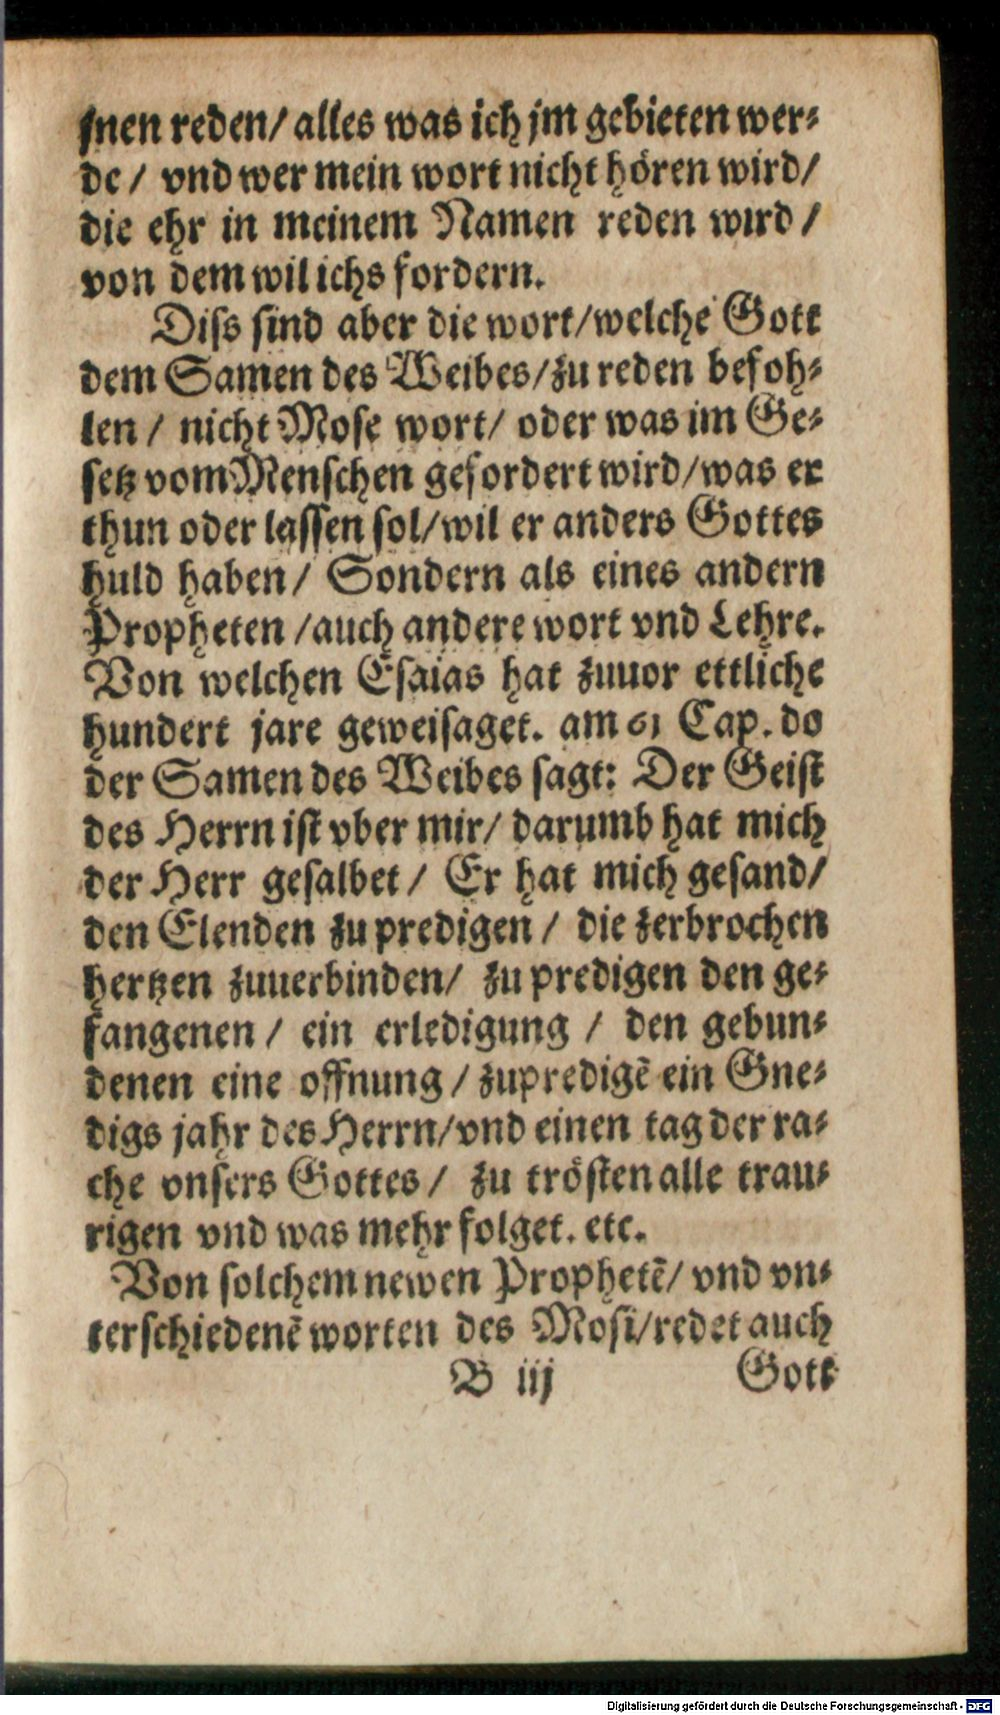 jnen reden/ alles was ich jm gebieten wer⸗
de/ vnd wer mein wort nicht hören wird/
die ehr in meinem Namen reden wird/
von dem wil ichs fordern.
Diss sind aber die wort/welche Gott
dem Samen des Weibes/zu reden befoh⸗
len/ nicht Mose wort/ oder was im Ge⸗
setz vom Menschen gefordert wird/was er
thun oder lassen sol/wil er anders Gottes
huld haben/ Sondern als eines andern
Propheten/auch andere wort vnd Lehre.
Von welchen Esaias hat zuuor ettliche
hundert jare geweisaget. am 61 Cap. do
der Samen des Weibes sagt: Der Geist
des Herrn ist vber mir/ darumb hat mich
der Herr gesalbet/ Er hat mich gesand/
den Elenden zu predigen/ die zerbrochen
hertzen zuuerbinden/ zu predigen den ge⸗
fangenen/ ein erledigung/ den gebun⸗
denen eine offnung/zupredigẽ ein Gne⸗
digs jahr des Herrn/vnd einen tag der ra⸗
che vnsers Gottes/ zu trösten alle trau⸗
rigen vnd was mehr folget. etc.
Von solchem newen Prophetẽ/ vnd vn⸗
terschiedenẽ worten des Mosi/redet auch
B iij Gott
Digitalisierung gefördert durch die Deutsche Forschungsgemeinschaft - DFG